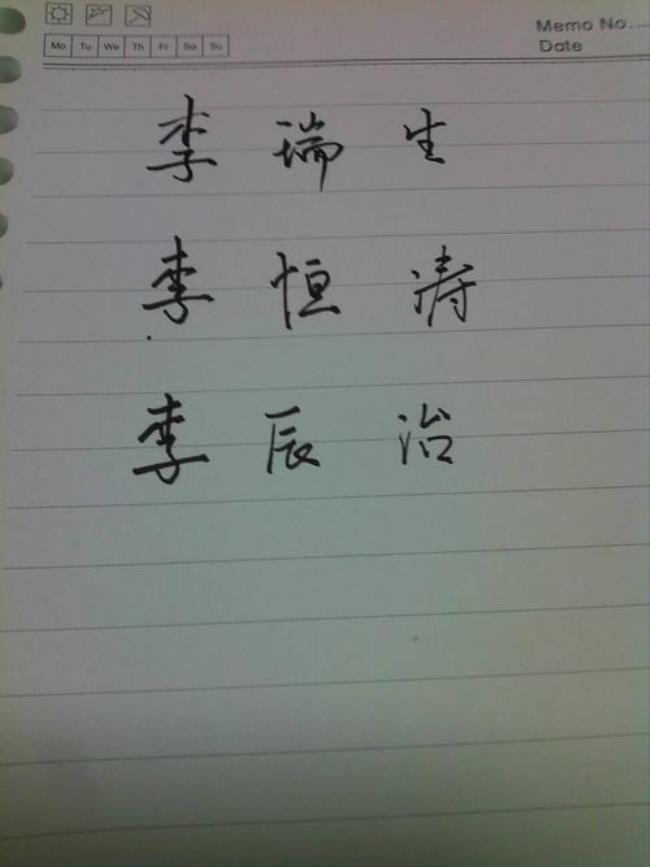 Memo No.
Mo Tu We Th Fr Sa Su
Date
李瑞生
李恒涛
李辰治